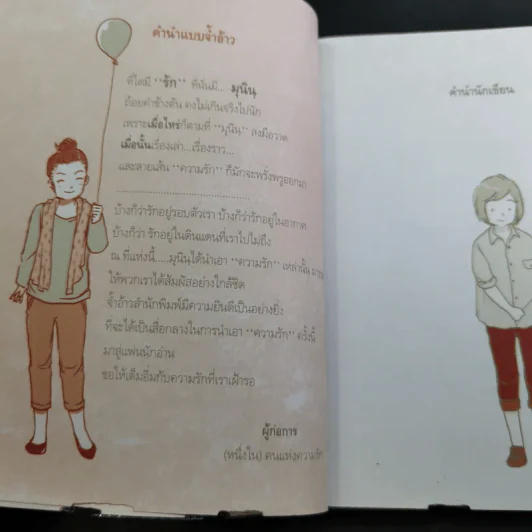 คำนำแบบจ้ำอ้าว
ที่ใดมี "รัก" ที่นั่นมี.... มุนินฺ
ถ้อยคำข้างต้น คงไม่เกินจริงไปนัก
เพราะเมื่อไหร่ก็ตามที่ "มุนินฺ" ลงมือวาด
เมื่อนั้นเรื่องเล่า...เรื่องราว...
และลายเส้น "ความรัก" ก็มักจะพรั่งพรูออกมา
บ้างก็ว่ารักอยู่รอบตัวเรา บ้างก็ว่ารักอยู่ในอากาศ
บ้างก็ว่า รักอยู่ในดินแดนที่เราไปไม่ถึง
ณ ที่แห่งนี้.....มุนินฺได้นำเอา "ความรัก" เหล่านั้น
ให้พวกเราได้สัมผัสอย่างใกล้ชิด
จ้ำอ้าวสำนักพิมพ์มีความยินดีเป็นอย่างยิ่ง
ที่จะได้เป็นสื่อกลางในการนำเอา "ความรัก" ครั้งนี้
มาสู่แฟนนักอ่าน
ขอให้เต็มอิ่มกับความรักที่เราเฝ้ารอ
ผู้ก่อการ
(หนึ่งใน) คนแห่งความรัก
คำนำนักเขียน